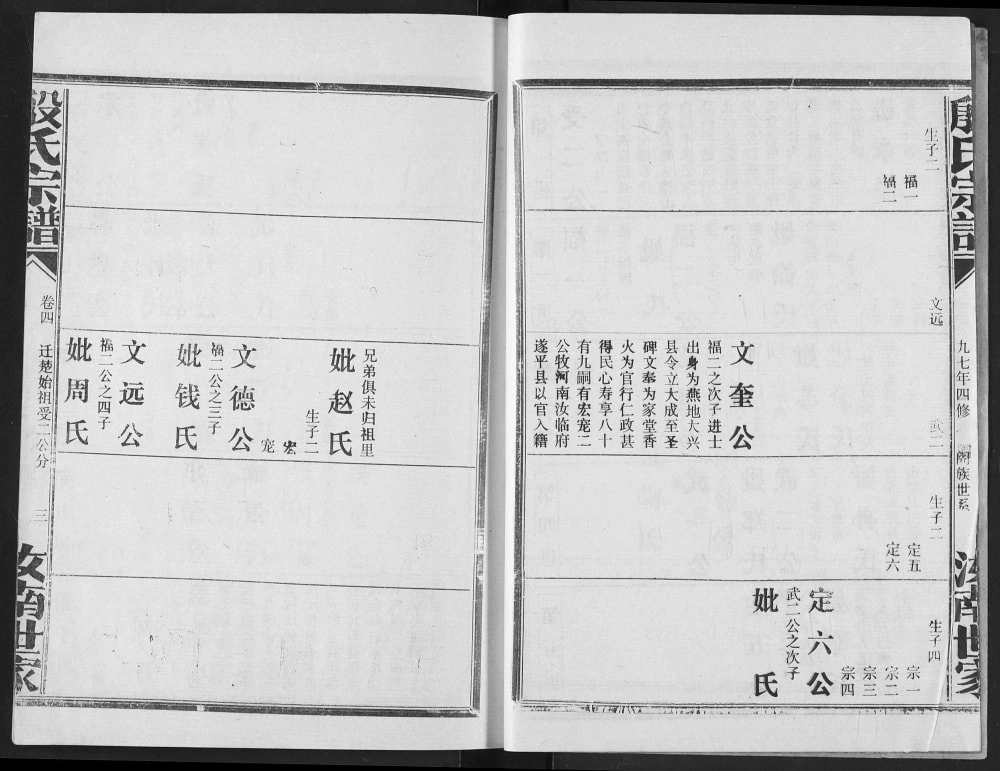 殷氏宗谱
九七年四修
阖族世系
汝南世家
生子二
福一
福二
文远
武二
文奎公
福二之次子进士
出身为燕地大兴
县令立大成至圣
碑文奉为家堂香
火为官行仁政甚
得民心寿享八十
有九嗣有宏宠二
公牧河南汝临府
遂平县以官入籍
生子二
定五
定六
生子四
宗一
宗二
宗三
宗四
定六公
武二公之次子
妣 氏
兄弟俱未归祖里
妣赵氏
生子二
宏
宠
文德公
福二公之三子
妣钱氏
文远公
福二公之四子
妣周氏
殷氏宗谱
卷四
迁楚始祖受二公分
三
汝南世家